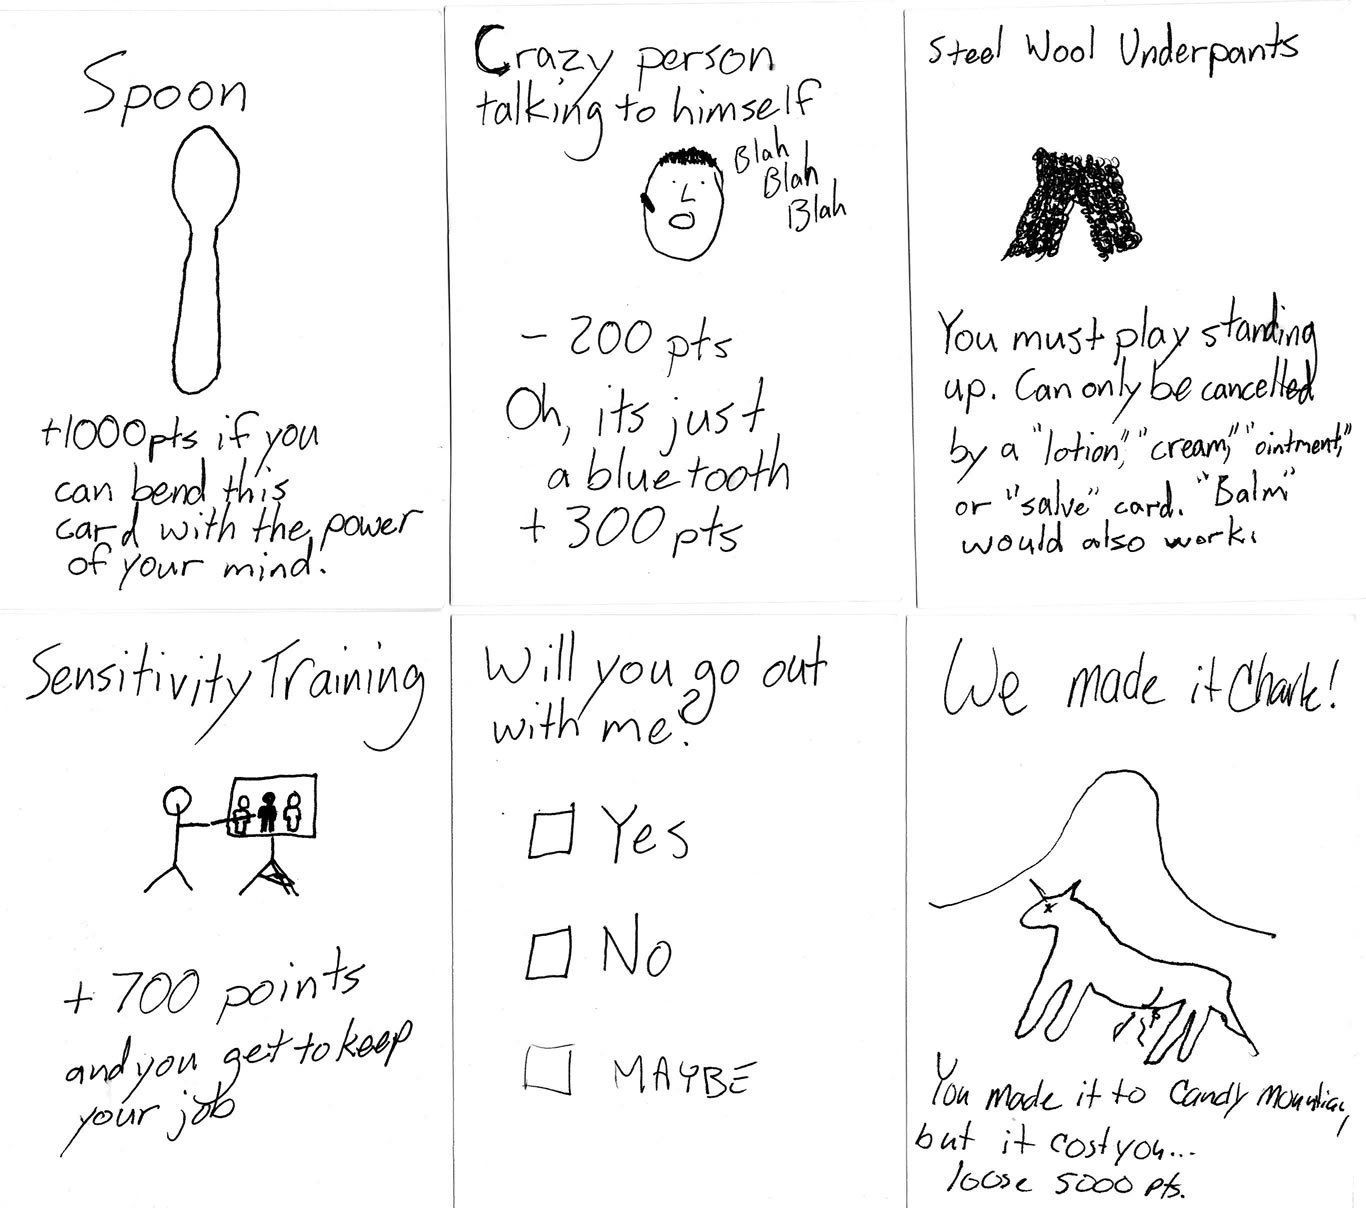 Spoon
+1000pts if you
can bend this
card with the power
of your mind.
Crazy person
talking to himself
Blah
Blah
Blah
- 200 pts
Oh, its just
a bluetooth
+ 300 pts
Steel Wool Underpants
You must play standing
up. Can only be cancelled
by a "lotion," "cream," "ointment,"
or "salve" card. "Balm"
would also work.
Sensitivity Training
+ 700 points
and you get to keep
your job
Will you go out
with me?
Yes
No
MAYBE
We made it Chark!
You made it to Candy Mountian,
but it cost you...
loose 5000 pts.